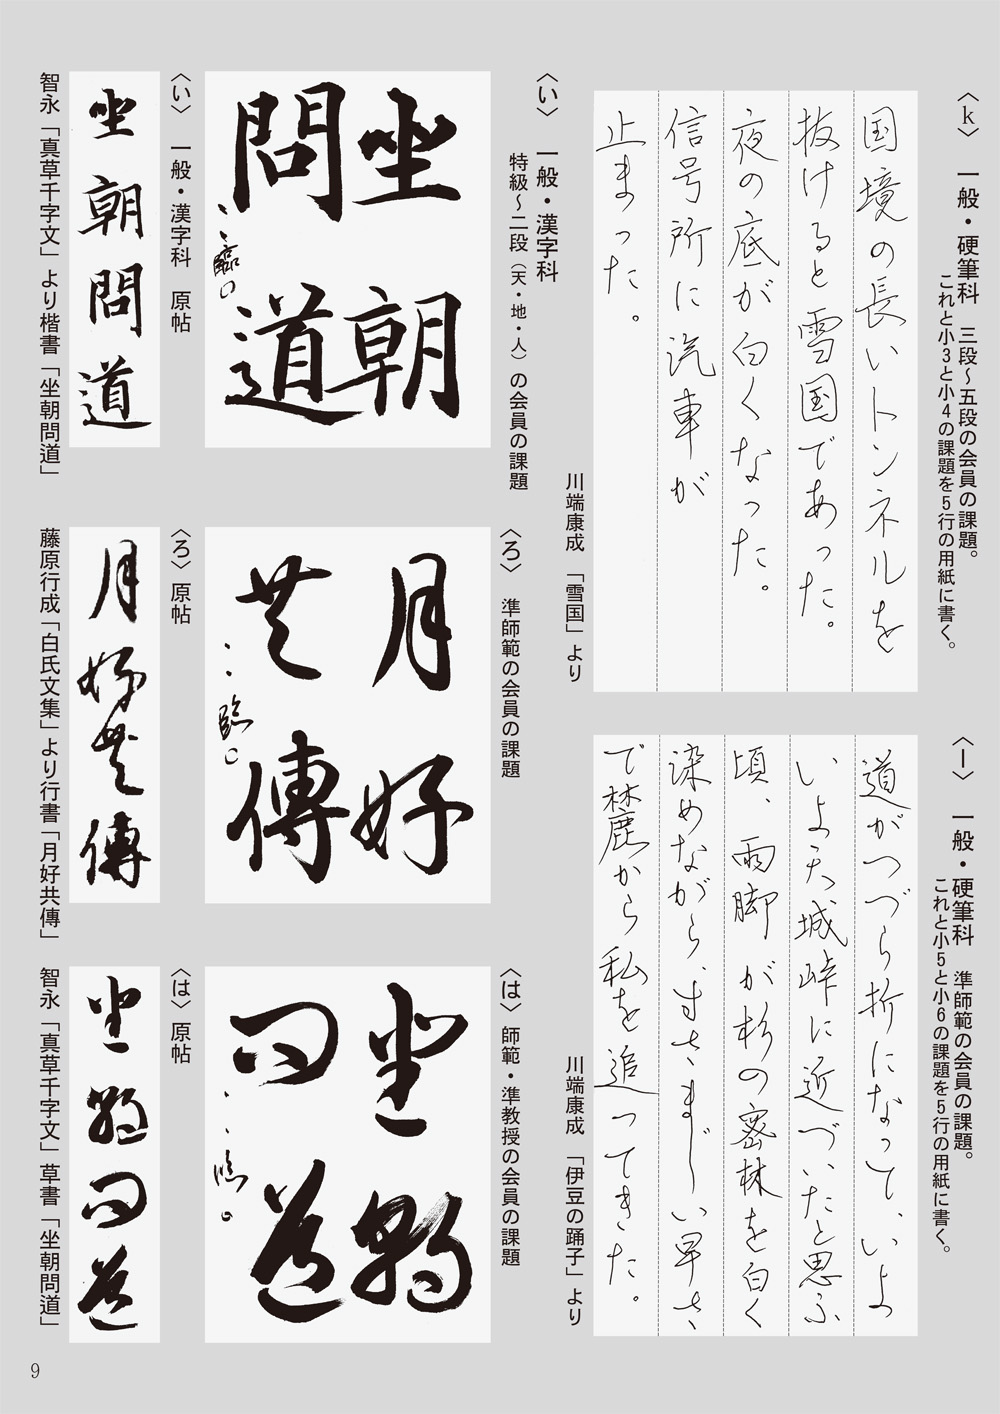 〈k〉 一般・硬筆科 三段～五段の会員の課題。
これと小3と小4の課題を5行の用紙に書く。
国境の長いトンネルを
抜けると雪国であった。
夜の底が白くなった。
信号所に汽車が
止まった。
川端康成 「雪国」より
〈l〉 一般・硬筆科 準師範の会員の課題。
これと小5と小6の課題を5行の用紙に書く。
道がつづら折になって、いよ
いよ天城峠に近づいたと思ふ
頃、雨脚が杉の密林を白く
染めながら、すさまじい早さ
で麓から私を追ってきた。
川端康成 「伊豆の踊子」より
〈い〉 一般・漢字科
特級～二段（天・地・人）の会員の課題
坐朝
問道
、、臨□
〈い〉 一般・漢字科 原帖
坐朝問道
智永「真草千字文」より楷書「坐朝問道」
〈ろ〉 準師範の会員の課題
月好
共傳
、、臨□
〈ろ〉原帖
月好共傳
藤原行成「白氏文集」より行書「月好共傳」
〈は〉 師範・準教授の会員の課題
坐朝
問道
、、臨□
〈は〉原帖
坐朝問道
智永「真草千字文」草書「坐朝問道」
9